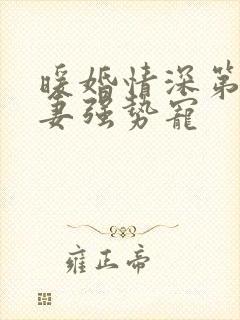 暖婚情深第
妻强势宠
雍正帝